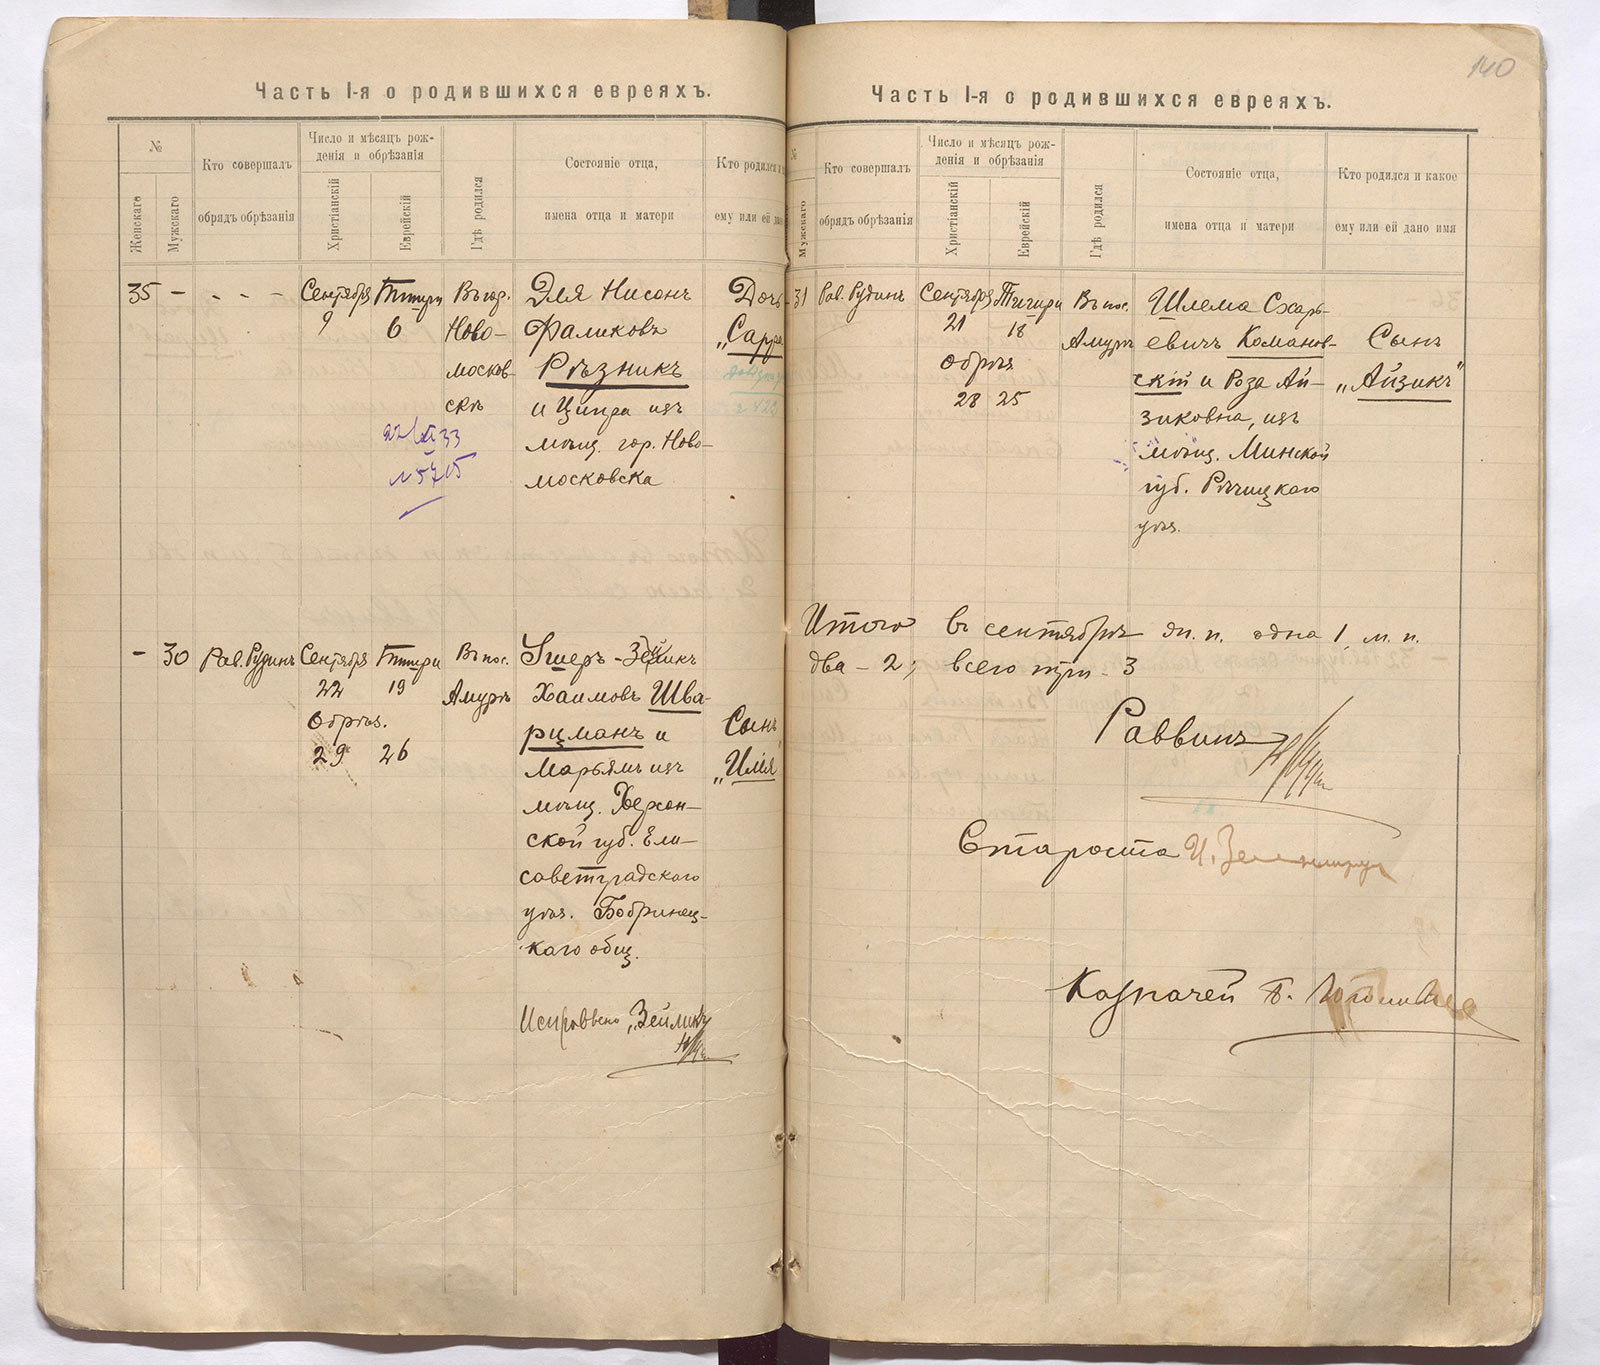 Часть I-я о родившихся евреяхъ.
№
Женскаго
Мужскаго
Кто совершалъ
обрядъ обрѣзанія
Число и мѣсяцъ рож-
денія и обрѣзанія
Христіанскій
Еврейскій
Гдѣ родился
Состояніе отца,
имена отца и матери
Кто родился и
ему или ей дано
35 - - - -
Сентября
9
Тишри
6
Въ гор.
Ново-
москов-
скѣ
Эля Нисонъ
Фаликовъ
Рѣзникъ
и Ципра изъ
мѣщ. гор. Ново-
московска
Дочь
„Сарра
33
N 5705
- 30
Рав. Рудинъ
Сентября
22
Обрѣз.
29
Тишри
19
26
Въ пос.
Амуръ
Ушеръ-Зейликъ
Хаимовъ Шва-
рцманъ и
Марьямъ изъ
мѣщ. Херсон-
ской губ. Ели-
саветградскаго
уѣз. Бобринец-
каго общ.
Сынъ
„Илія
Исправлено „Зейликъ
140
Часть I-я о родившихся евреяхъ.
№
Мужскаго
Кто совершалъ
обрядъ обрѣзанія
Число и мѣсяцъ рож-
денія и обрѣзанія
Христіанскій
Еврейскій
Гдѣ родился
Состояніе отца,
имена отца и матери
Кто родился и какое
ему или ей дано имя
31
Рав. Рудинъ
Сентября
21
Обрѣз
28
Тишри
18
25
Въ пос.
Амуръ
Шлема Схарь-
евичъ Команов-
скій и Роза Ай-
зиковна, изъ
мѣщ. Минской
губ. Рѣчицкаго
уѣз.
Сынъ
„Айзикъ“
Итого въ сентябрѣ ж. п. одна 1, м. п.
два - 2, всего три - 3
Раввинъ
Староста И.
Казначей